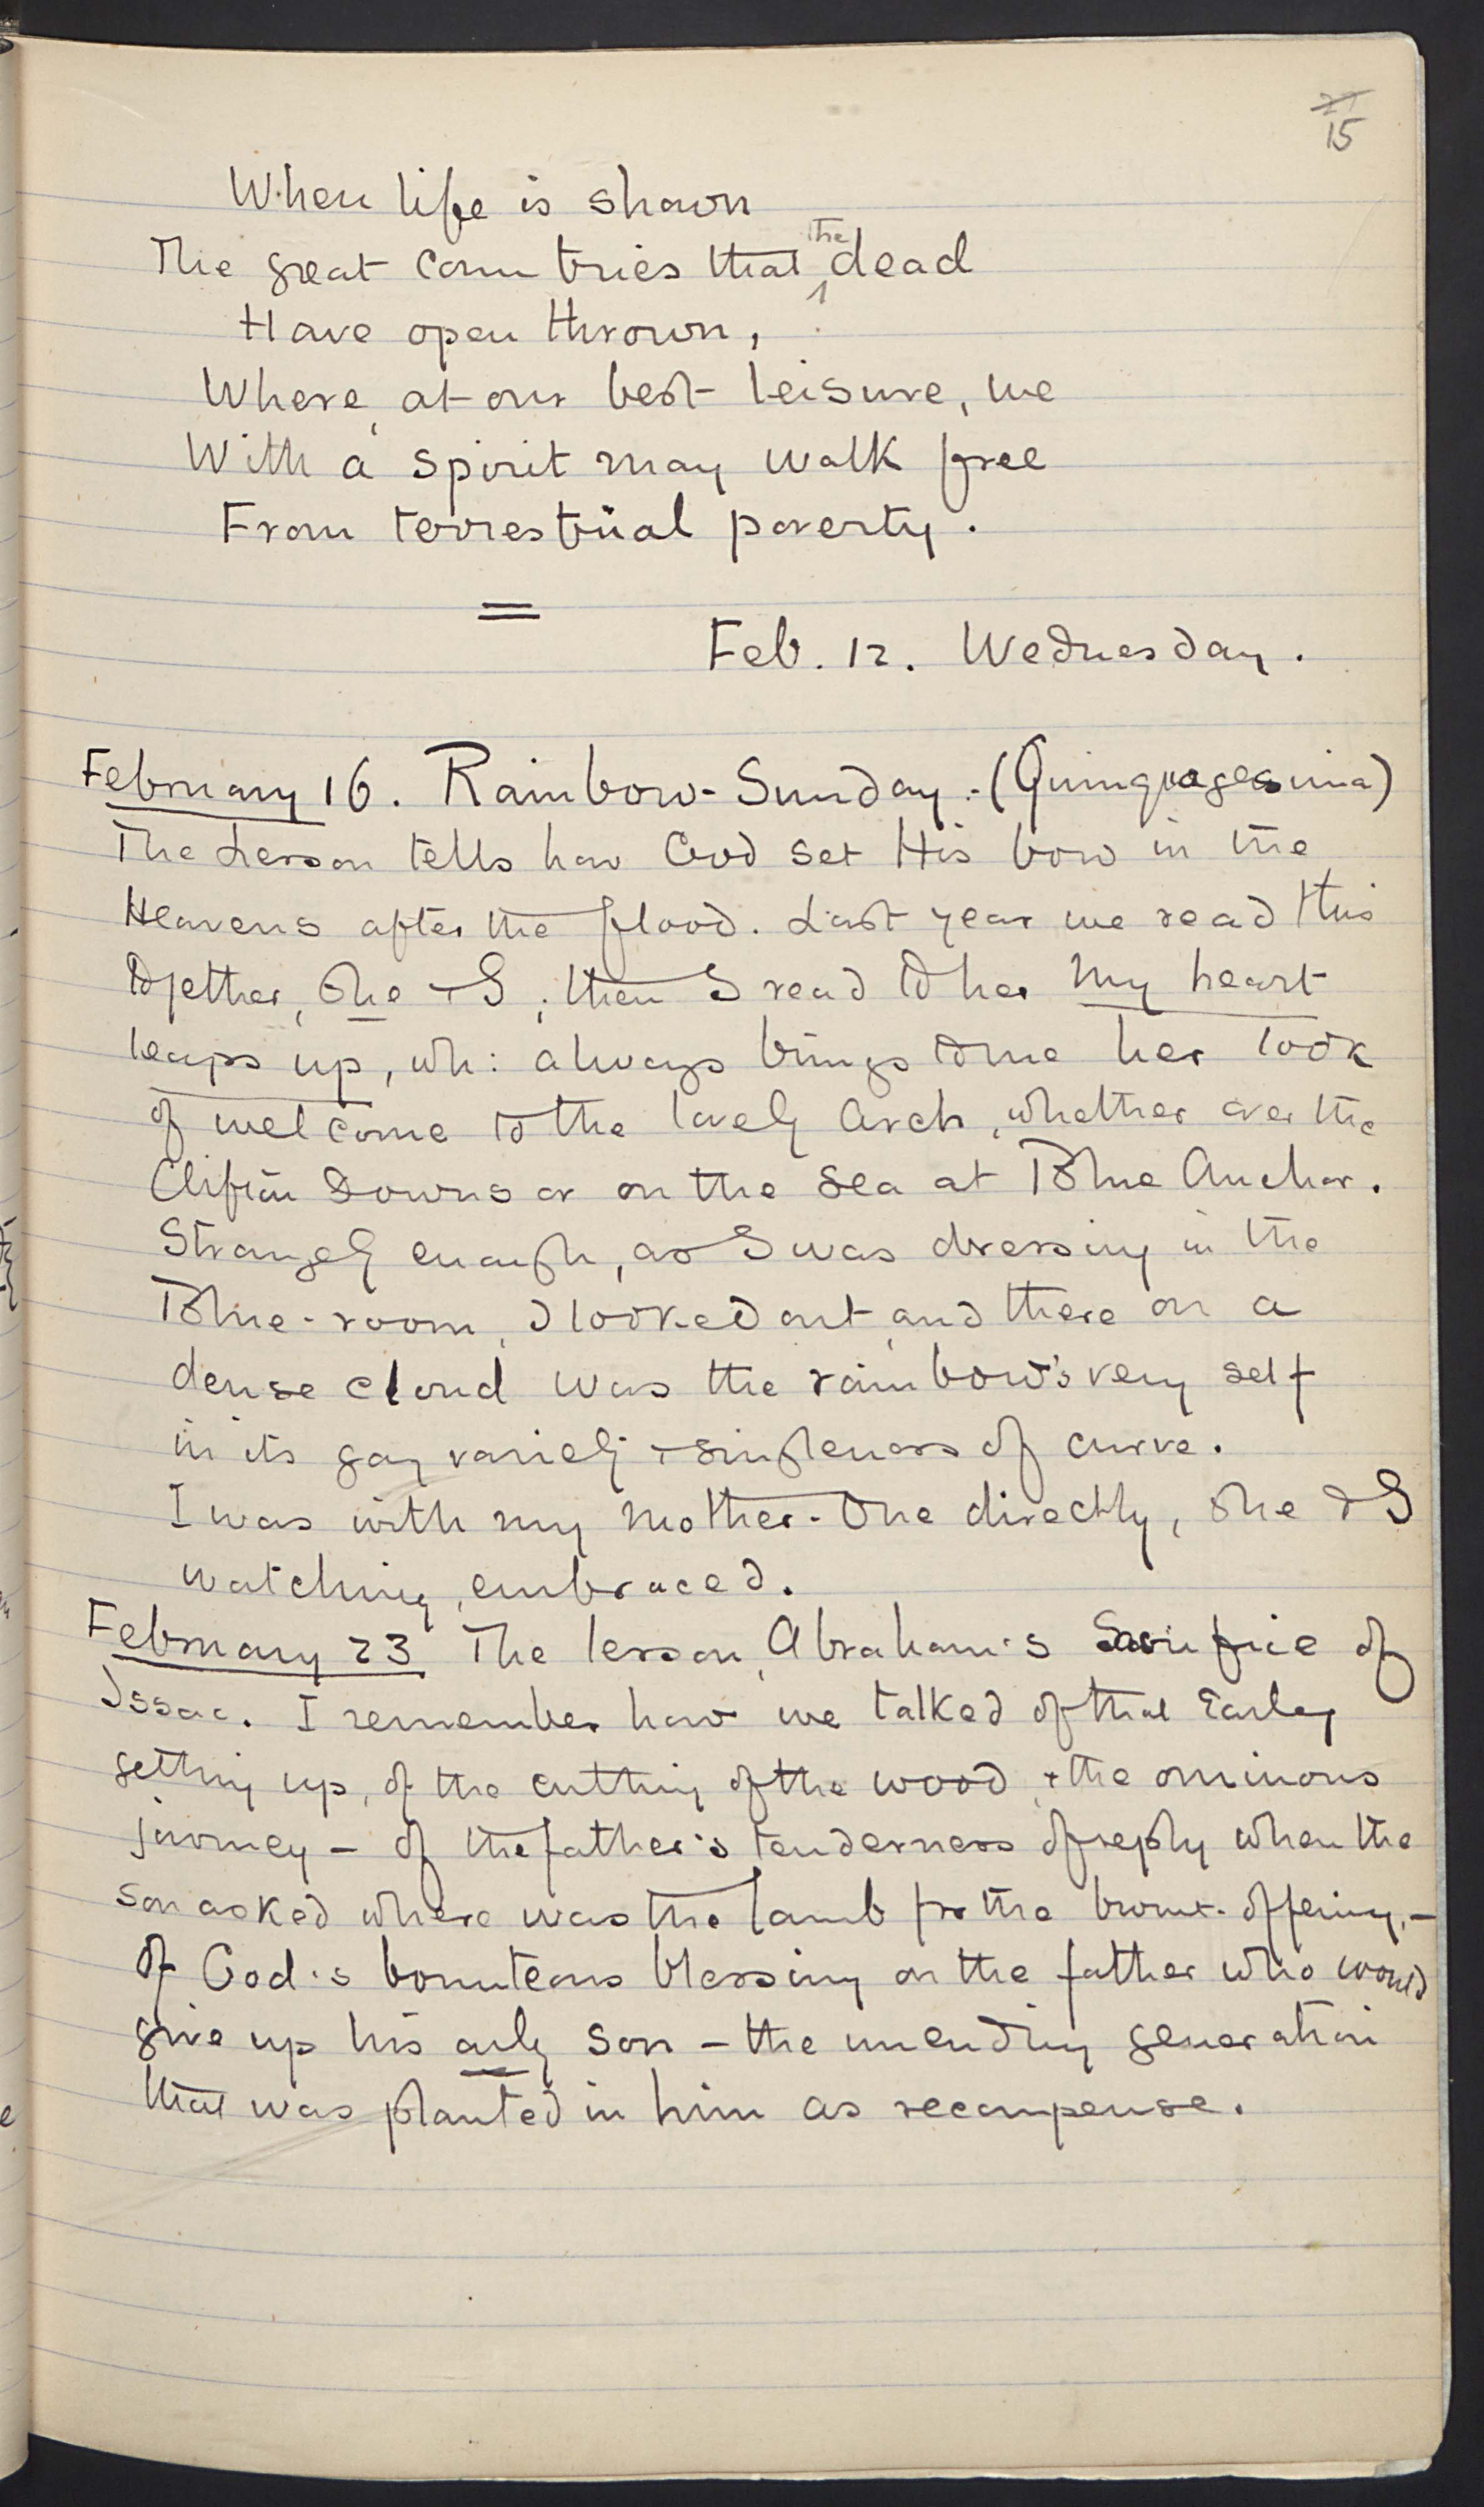 21
15
When life is shown
The great countries that the dead
Have open thrown,
Where, at our best leisure, we
With a spirit may walk free
From terrestrial poverty.
=
Feb. 12. Wednesday.
February 16. Rainbow-Sunday :- (Quinquagesima)
The Lesson tells how God set His bow in the
Heavens after the flood. Last year we read this
together, She & I; then I read to her My heart
leaps up, wh: always brings to me her look
of welcome to the lovely Arch, whether over the
Clifton Downs or on the Sea at Blue Anchor.
Strangely enough, as I was dressing in the
Blue-room, I looked out, and there on a
dense cloud was the rainbow's very self
in its gay variety & singleness of curve.
I was with my Mother-One directly, She & I
watching, embraced.
February 23 The lesson, Abraham's Sacrifice of
Issac. I remember how we talked of that Earley
getting up, of the cutting of the wood, & the ominous
journey – of the father's tenderness of reply when the
son asked where was the lamb for the burnt-offering, –
of God's bounteous blessing on the father who would
give up his only son – the unending generation
that was planted in him as recompense.